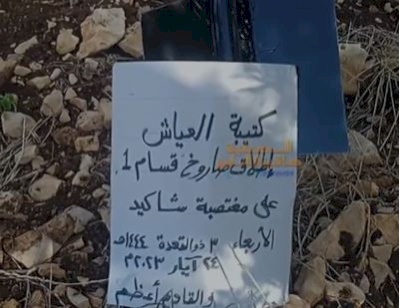 كتيبة العياش
إطلاق صاروخ قسام 1
على مغتصبة شاكيد
الأربعاء ٣ ذوالقعدة ١٤٤٤هـ
٢٤ آيار ٢٠٢٣م
والقادم أعظم